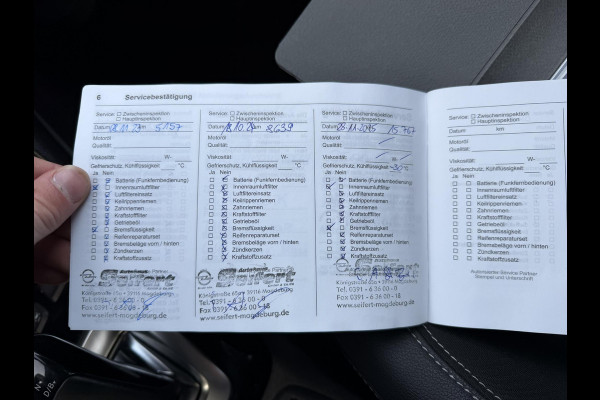 6 Servicebestätigung
Service: Zwischeninspektion
Hauptinspektion
Datum km 5157
Motoröl
Qualität:
Viskosität: W-
Gefrierschutz, Kühlflüssigkeit: °C
Ja Nein
Batterie (Funkfernbedienung)
Innenraumluftfilter
Luftfiltereinsatz
Keilrippenriemen
Zahnriemen
Kraftstofffilter
Getriebeöl
Bremsflüssigkeit
Reifenreparaturset
Bremsbeläge vorn / hinten
Zündkerzen
Kraftstoffzusatz
Autohaus
Seifert
Königstraße 39116 Magdeburg
Tel. 0391 - 6 36 00 - 0
Fax 0391 - 6 36 00 - 18
www.seifert-magdeburg.de
Service: Zwischeninspektion
Hauptinspektion
Datum km 8639
Motoröl
Qualität:
Viskosität: W-
Gefrierschutz, Kühlflüssigkeit: °C
Ja Nein
Batterie (Funkfernbedienung)
Innenraumluftfilter
Luftfiltereinsatz
Keilrippenriemen
Zahnriemen
Kraftstofffilter
Getriebeöl
Bremsflüssigkeit
Reifenreparaturset
Bremsbeläge vorn / hinten
Zündkerzen
Kraftstoffzusatz
Autohaus
Seifert
Königstraße 39116 Magdeburg
Tel. 0391 - 6 36 00 - 0
Fax 0391 - 6 36 00 - 18
www.seifert-magdeburg.de
Service: Zwischeninspektion
Hauptinspektion
Datum
Motoröl
Qualität:
Viskosität: W-
Gefrierschutz, Kühlflüssigkeit: -30°C
Ja Nein
Batterie (Funkfernbedienung)
Innenraumluftfilter
Luftfiltereinsatz
Keilrippenriemen
Zahnriemen
Kraftstofffilter
Getriebeöl
Bremsflüssigkeit
Reifenreparaturset
Bremsbeläge vorn / hinten
Zündkerzen
Kraftstoffzusatz
Seifert
Königstraße 39116 Magdeburg
Tel. 0391 - 6 36 00 - 0
Fax 0391 - 6 36 00 - 18
www.seifert-magdeburg.de
Service: Zwischeninspektion
Hauptinspektion
Datum km
Motoröl
Qualität:
Viskosität: W-
Gefrierschutz, Kühlflüssigkeit: °C
Ja Nein
Batterie (Funkfernbedienung)
Innenraumluftfilter
Luftfiltereinsatz
Keilrippenriemen
Zahnriemen
Kraftstofffilter
Getriebeöl
Bremsflüssigkeit
Reifenreparaturset
Bremsbeläge vorn / hinten
Zündkerzen
Kraftstoffzusatz
Autorisierter Service Partner
Stempel und Unterschrift
N
D/B